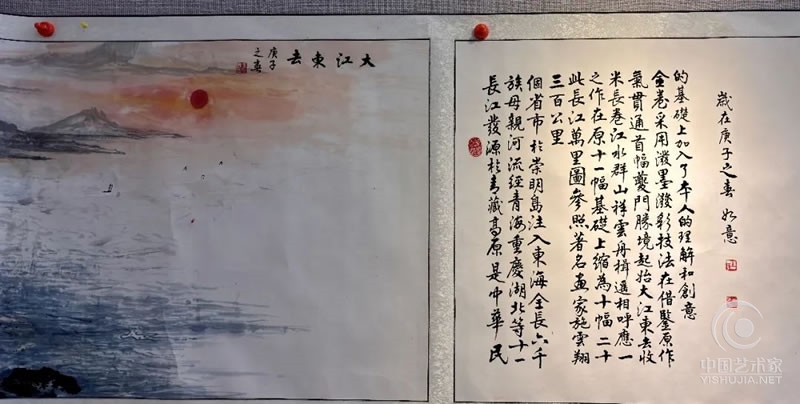 大江東去
庚子
之春
長江發源於青藏高原是中華民
族母親河流經青海重慶湖北等十一
個省市於崇明島注入東海全長六千
三百公里
此長江萬里圖參照著名畫家施雲翔
之作在原十一幅基礎上縮為十幅二十
米長卷江水群山祥雲舟楫遥相呼應一
氣貫通首幅夔門勝境起始大江東去收
全卷采用潑墨潑彩技法在借鑒原作
的基礎上加入了本人的理解和創意
歲在庚子之春 如意
中国艺术家
YISHUJIA.NET